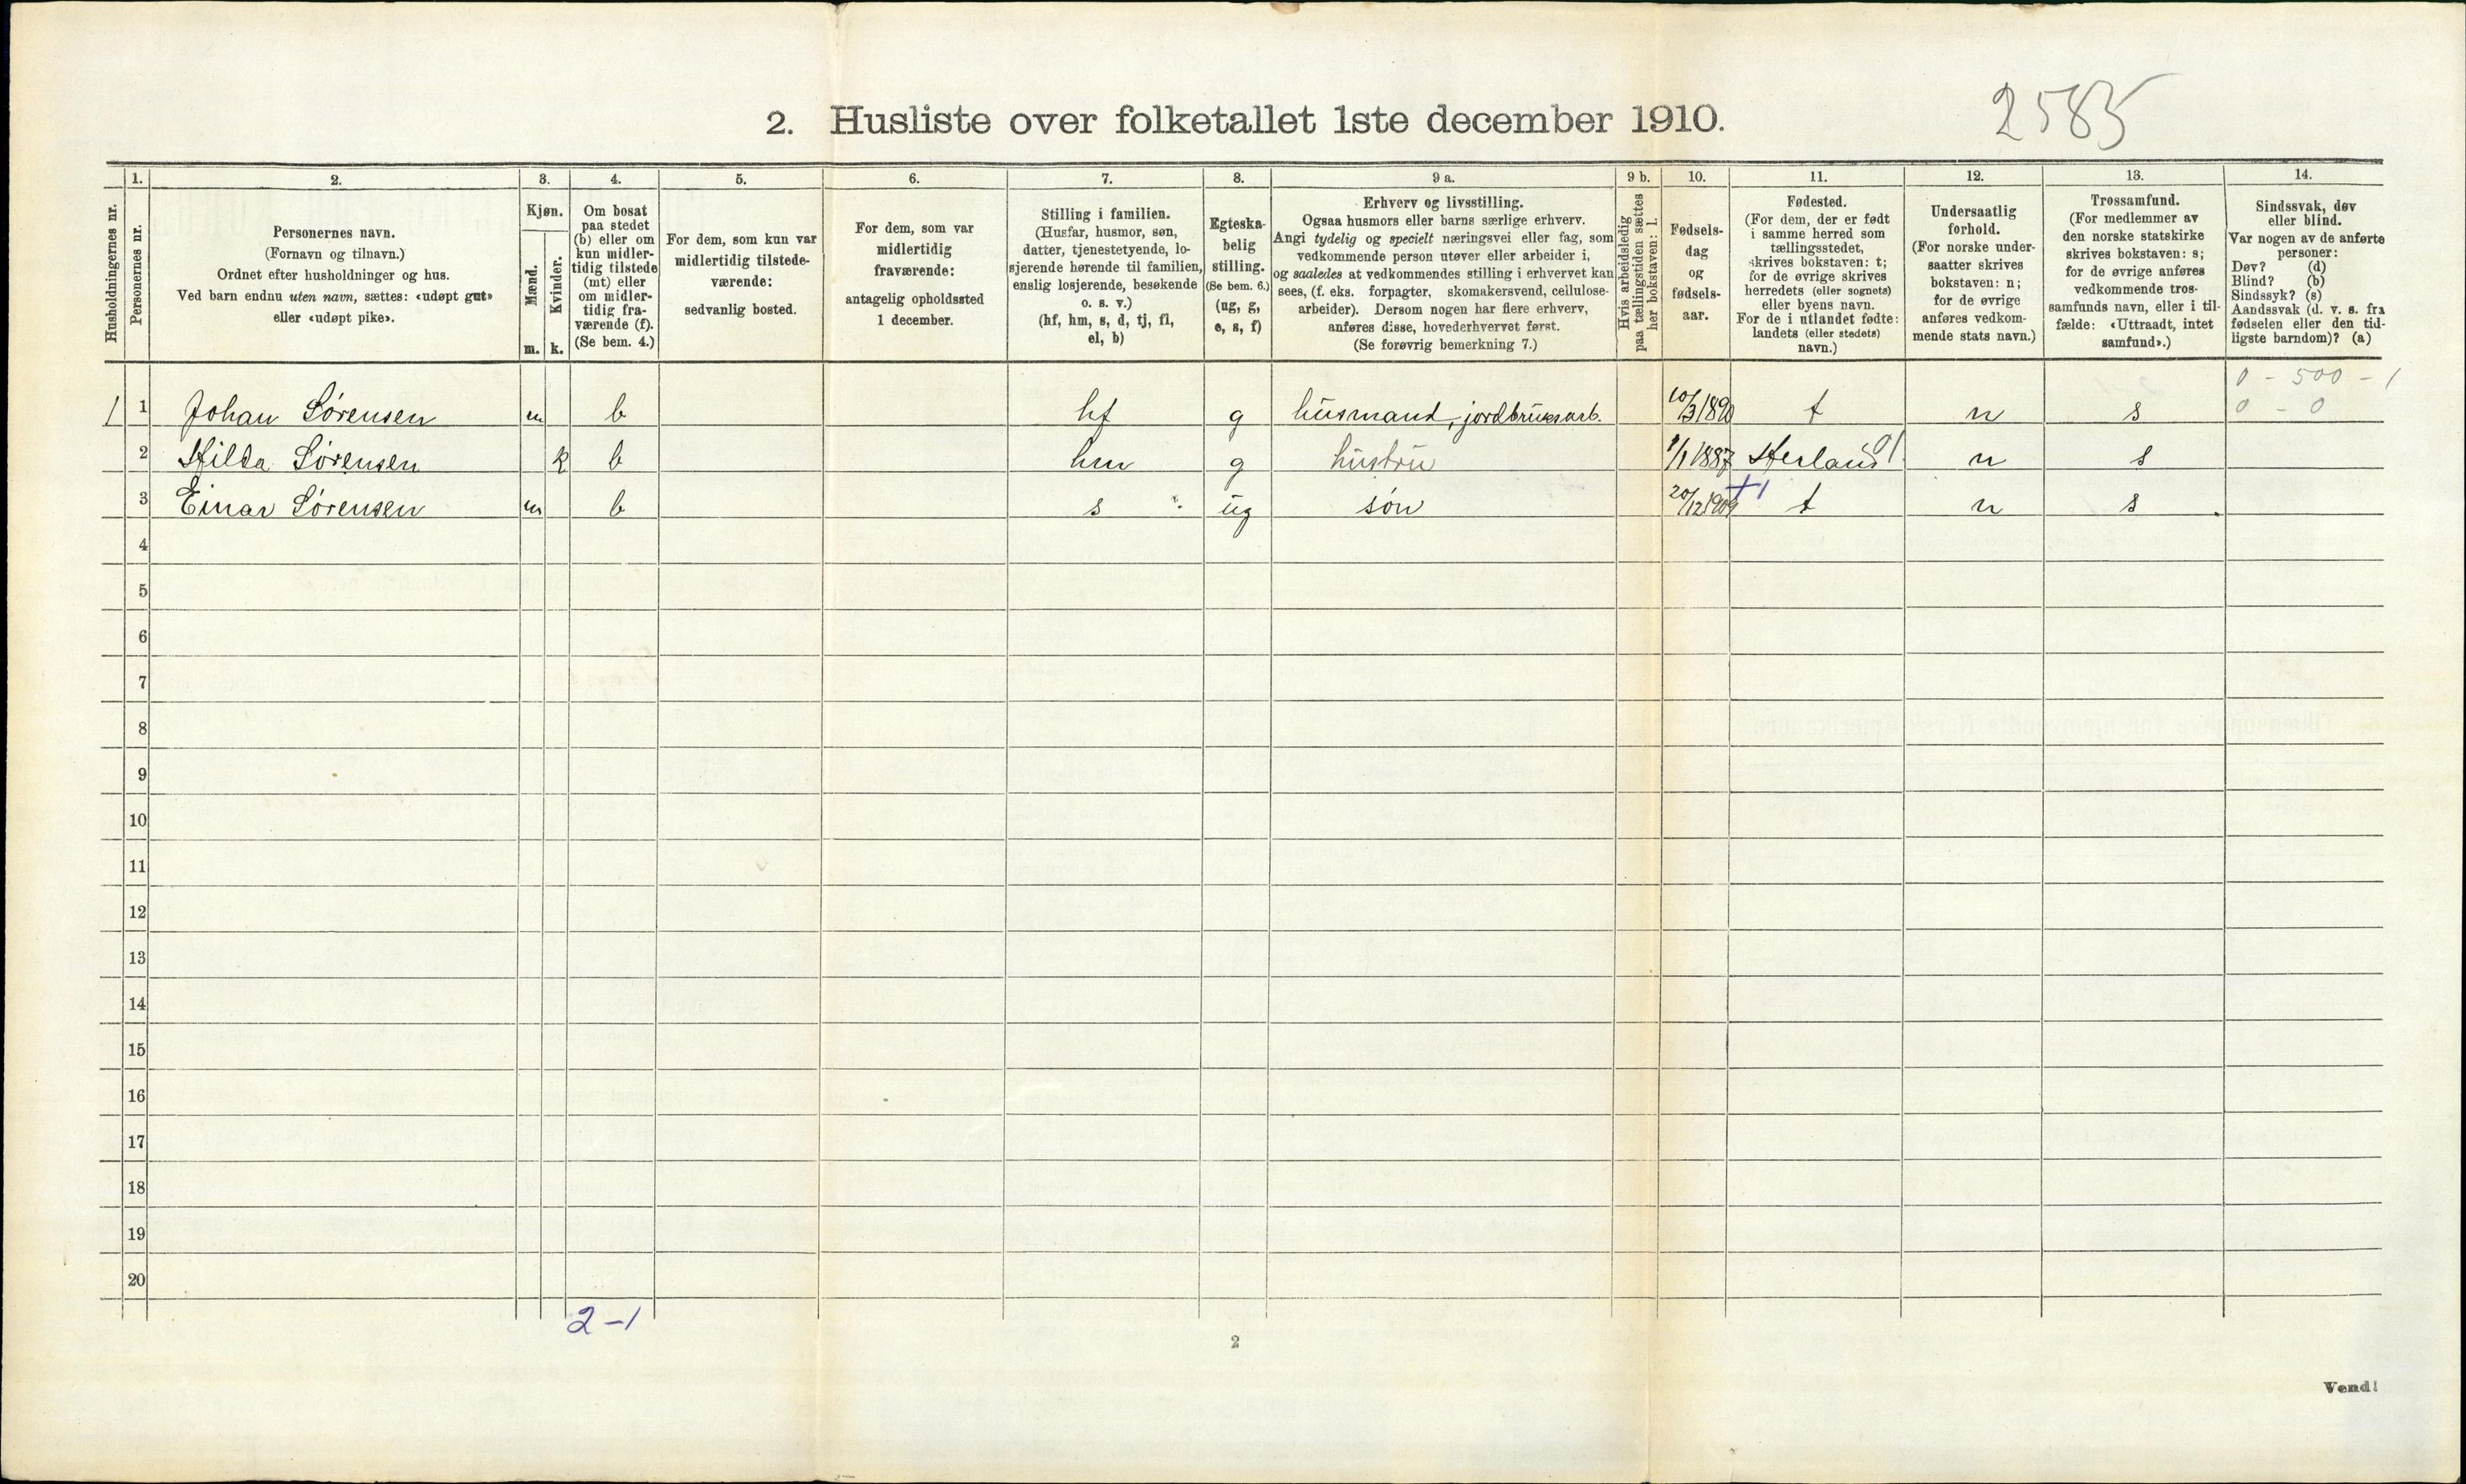 2583
2. Husliste over folketallet 1ste december 1910.
Husholdningernes nr.
1.
Personernes nr.
2.
Personernes navn.
(Fornavn og tilnavn.)
Ordnet efter husholdninger og hus.
Ved barn endnu uten navn, sættes: «udøpt gut»
eller «udøpt pike».
3.
Kjøn.
Mænd.
Kvinder.
m. k.
4.
Om bosat
paa stedet
(b) eller om
kun midler-
tidig tilstede
(mt) eller
om midler-
tidig fra-
værende (f).
(Se bem. 4.)
5.
For dem, som kun var
midlertidig tilstede-
værende:
sedvanlig bosted.
6.
For dem, som var
midlertidig
fraværende:
antagelig opholdssted
1 december.
7.
Stilling i familien.
(Husfar, husmor, søn,
datter, tjenestetyende, lo-
sjerende hørende til familien,
enslig losjerende, besøkende
o. s. v.)
(hf, hm, s, d, tj, fl,
el, b)
8.
Egteska-
belig
stilling.
(Se bem. 6.)
(ug, g,
e, s, f)
9 a.
Erhverv og livsstilling.
Ogsaa husmors eller barns særlige erhverv.
Angi tydelig og specielt næringsvei eller fag, som
vedkommende person utøver eller arbeider i,
og saaledes at vedkommendes stilling i erhvervet kan
sees, (f. eks. forpagter, skomakersvend, cellulose-
arbeider). Dersom nogen har flere erhverv,
anføres disse, hovederhvervet først.
(Se forøvrig bemerkning 7.)
9 b.
Hvis arbeidsledig
paa tællingstiden sættes
her bokstaven: l.
10.
Fødsels-
dag
og
fødsels-
aar.
11.
Fødested.
(For dem, der er født
i samme herred som
tællingsstedet,
skrives bokstaven: t;
for de øvrige skrives
herredets (eller sognets)
eller byens navn.
For de i utlandet fødte:
landets (eller stedets)
navn.)
12.
Undersaatlig
forhold.
(For norske under-
saatter skrives
bokstaven: n;
for de øvrige
anføres vedkom-
mende stats navn.)
13.
Trossamfund.
(For medlemmer av
den norske statskirke
skrives bokstaven: s;
for de øvrige anføres
vedkommende tros-
samfunds navn, eller i til-
fælde: «Uttraadt, intet
samfund».)
14.
Sindssvak, døv
eller blind.
Var nogen av de anførte
personer:
Døv? (d)
Blind? (b)
Sindssyk? (s)
Aandssvak (d. v. s. fra
fødselen eller den tid-
ligste barndom)? (a)
0 - 500 - 1
1 1 Johan Sørensen m b hf g husmand, jordbruksarb. 10/3 1890 t n s 0 - 0
2 Hilda Sørensen k b hm g hustru 1/1 1887 Herland 01 n s
3 Einar Sørensen m b s ug søn 20/12 1909 +1 t n s
4
5
6
7
8
9
10
11
12
13
14
15
16
17
18
19
20
2-1
2
Vend!